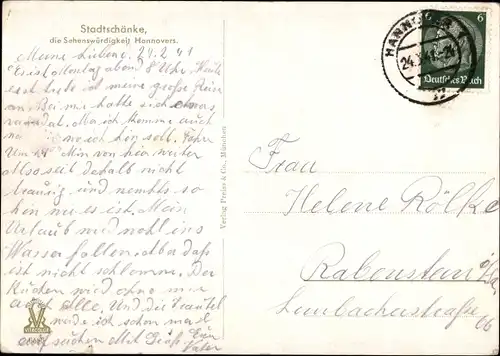 Stadtschänke,
die Sehenswürdigkeit Hannovers.
Meine Lieben. 24.2.41
Es ist Montag abend 8 Uhr. Heute
ist meine große Reise
an. Bei me hatte sich etwas
Ma ich komme auch
wo ich hin soll.
Um Min von hier weiter
Also seit deshalb nicht
traurig und so
hin nu es ist. Mein
Urlaub wird wohl ins
Wasser fallen. Aber daß
ist nicht schlomm. Der
Kuchen wird ohne mir
auch alle. Und die
werde ich schon mal
auf suchen Mit Gruß Euer
Vater
Verlag Preiss & Co., München
VITACOLOR
HANNOVER
24.
6 6
Deutsches Reich
Frau
Helene Rölke
Rabenstein
Limbacherstraße 66